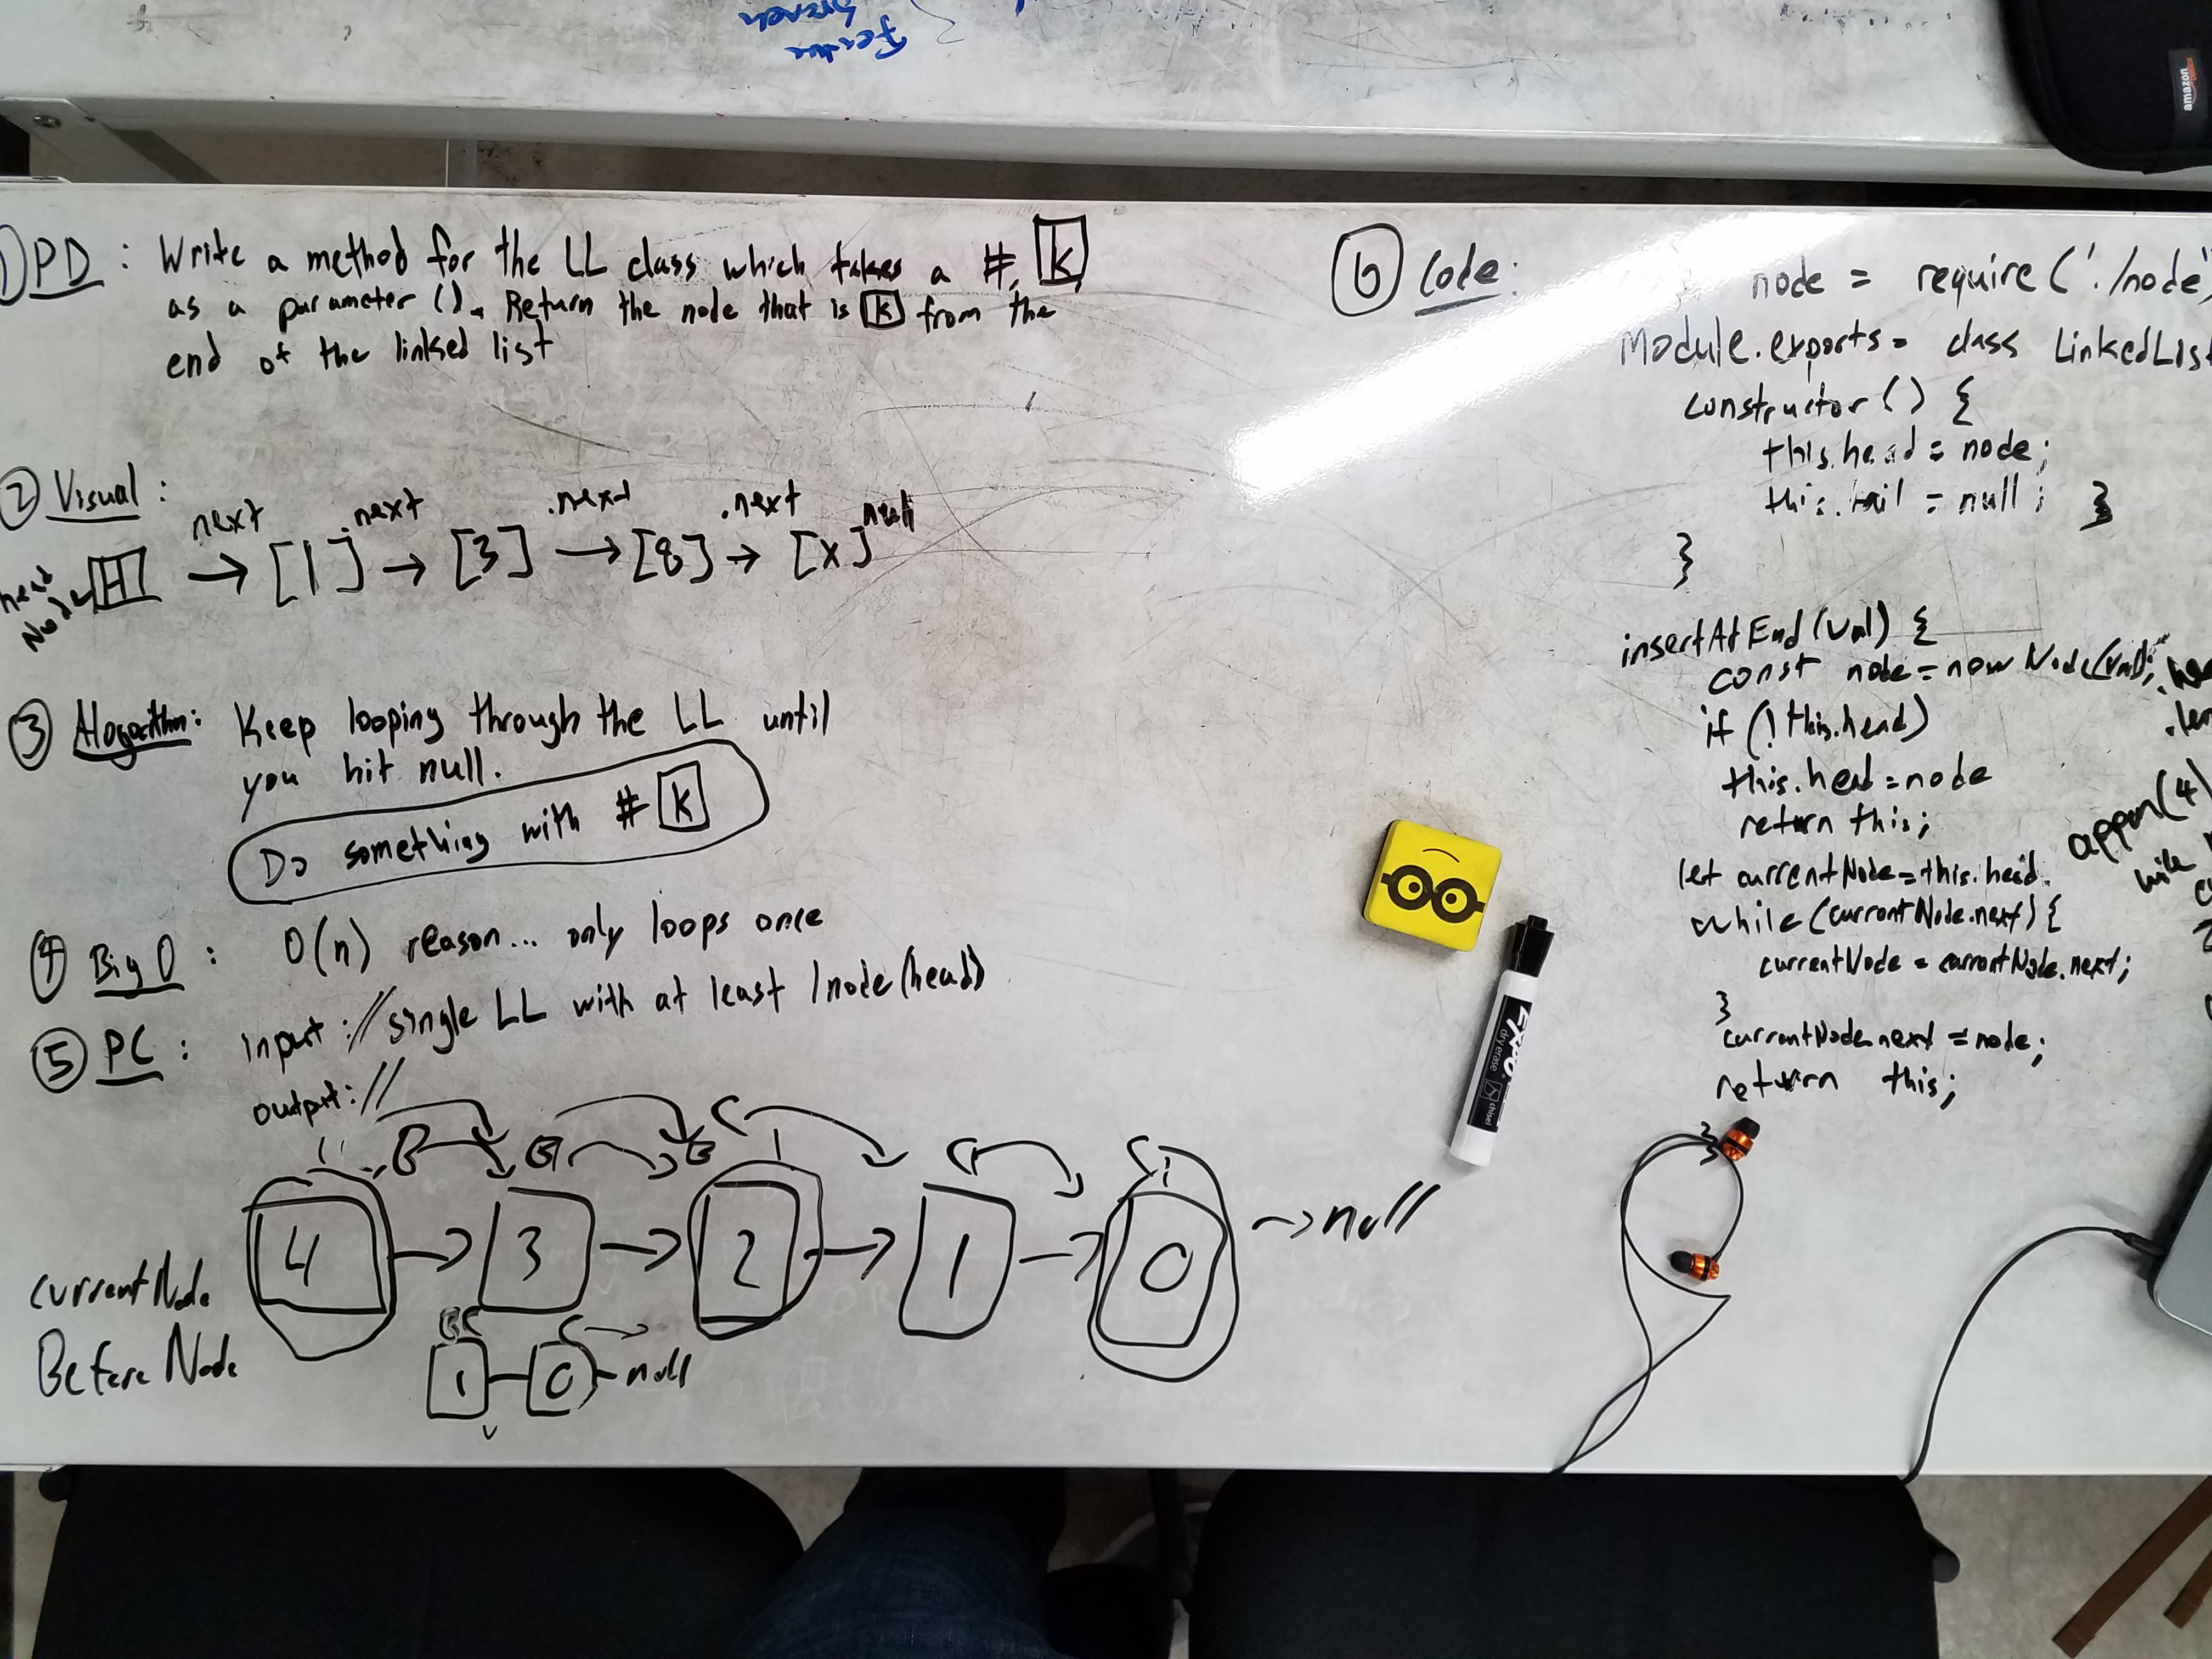 Feature
branch
amazon
① PD : Write a method for the LL class which takes a #, k
as a parameter (). Return the node that is k from the
end of the linked list
② Visual :
next .next .next .next null
head Node H → [1] → [3] → [8] → [x]
③ Alogorithm: Keep looping through the LL until
you hit null.
Do something with # k
④ Big O : O(n) reason... only loops once
⑤ PC : Input : // single LL with at least 1 node (head)
output: //
4 → 3 → 2 → 1 → 0 → null
currentNode
Before Node
1 0 null
⑥ Code:
node = require('./node'
Module.exports = class LinkedList
constructor () {
this.head = node;
this.tail = null; }
}
insertAtEnd (val) {
const node = new Node(val);
if (!this.head)
this.head = node
return this;
let currentNode = this.head.
while (currentNode.next) {
currentNode = currentNode.next;
}
currentNode.next = node;
return this;
}
appen(4)
EXPO
dry erase
chisel